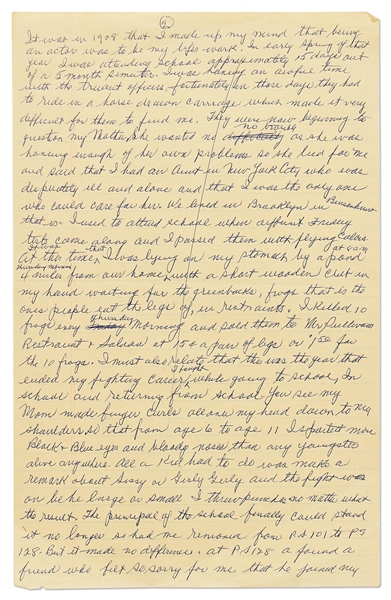 2
It was in 1908 that I made up my mind that being
an actor was to be my lifes work. In early spring of that
year I was attending school approximately 15 days out
of a 5 month simester. I was having an awful time
with the truant officer, fortunately in those days they had
to ride in a horse drawn carriage which made it very
difficult for them to find me. They were now beginning to
question my Mother, she wanted no trouble as she was
having enough of her own problems so she lied for me
and said that I had an Aunt in New York City who was
desperately ill and alone and that I was the only one
who could care for her. We lived in Brooklyn in Bensonhurst
that is I used to attend school when Friday
tests came along and I passed them with flying colors.
At the time, I was lying on my stomach by a pond
4 miles from our home with a short wooden club in
my hand waiting for the greenbacks, frogs that is the
ones people eat the legs of, in restraints. I killed 10
frogs every Thursday Morning and sold them to Mr Sullivans
Restraint & Saloon at 15¢ a pair of legs or 1.50 for
the 10 frogs. I must also relate that this was the year that
ended my fighting career, while going to school, In
school and returning from school. You see my
Mom made finger curls all over my head down to my
shoulders so that from age 6 to age 11 I sported more
Black & Blue eyes and bloody noses than any youngster
alive anywhere. All a Kid had to do was make a
remark about Sissy or Girly Girly and the fight was
on be he large or small I threw punches no matter what
the result. The principal of the school finally could stand
it no longer so had me removed from P.S 101 to PS
128. But it made no difference. at PS 128 I found a
friend who felt so sorry for me that he joined my